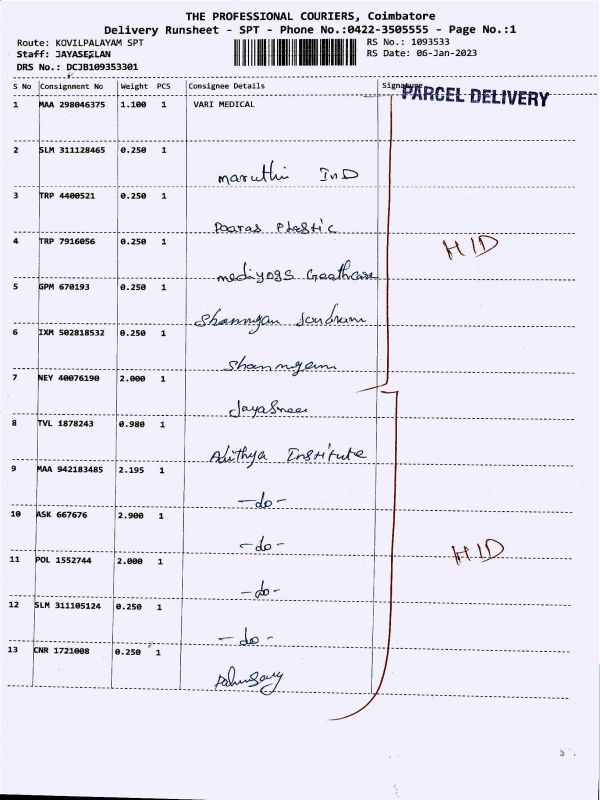 THE PROFESSIONAL COURIERS, Coimbatore
Delivery Runsheet - SPT - Phone No.:0422-3505555 - Page No.:1
Route: KOVILPALAYAM SPT RS No.: 1093533
Staff: JAYASEELAN RS Date: 06-Jan-2023
DRS No.: DCJB109353301
S No Consignment No Weight PCS Consignee Details Signature
PARCEL DELIVERY
1 MAA 298046375 1.100 1 VARI MEDICAL
2 SLM 311128465 0.250 1
maruthi InD
3 TRP 4400521 0.250 1
Paaras Plastic
4 TRP 7916056 0.250 1
HID
mediyogs
5 GPM 670193 0.250 1
Shanmugan
6 IXM 502818532 0.250 1
Shanmugam
7 NEY 40076190 2.000 1
Jayasree
8 TVL 1878243 0.980 1
Adithya Institute
9 MAA 942183485 2.195 1
-do-
10 ASK 667676 2.900 1
-do-
HID
11 POL 1552744 2.000 1
-do-
12 SLM 311105124 0.250 1
-do-
13 CNR 1721008 0.250 1